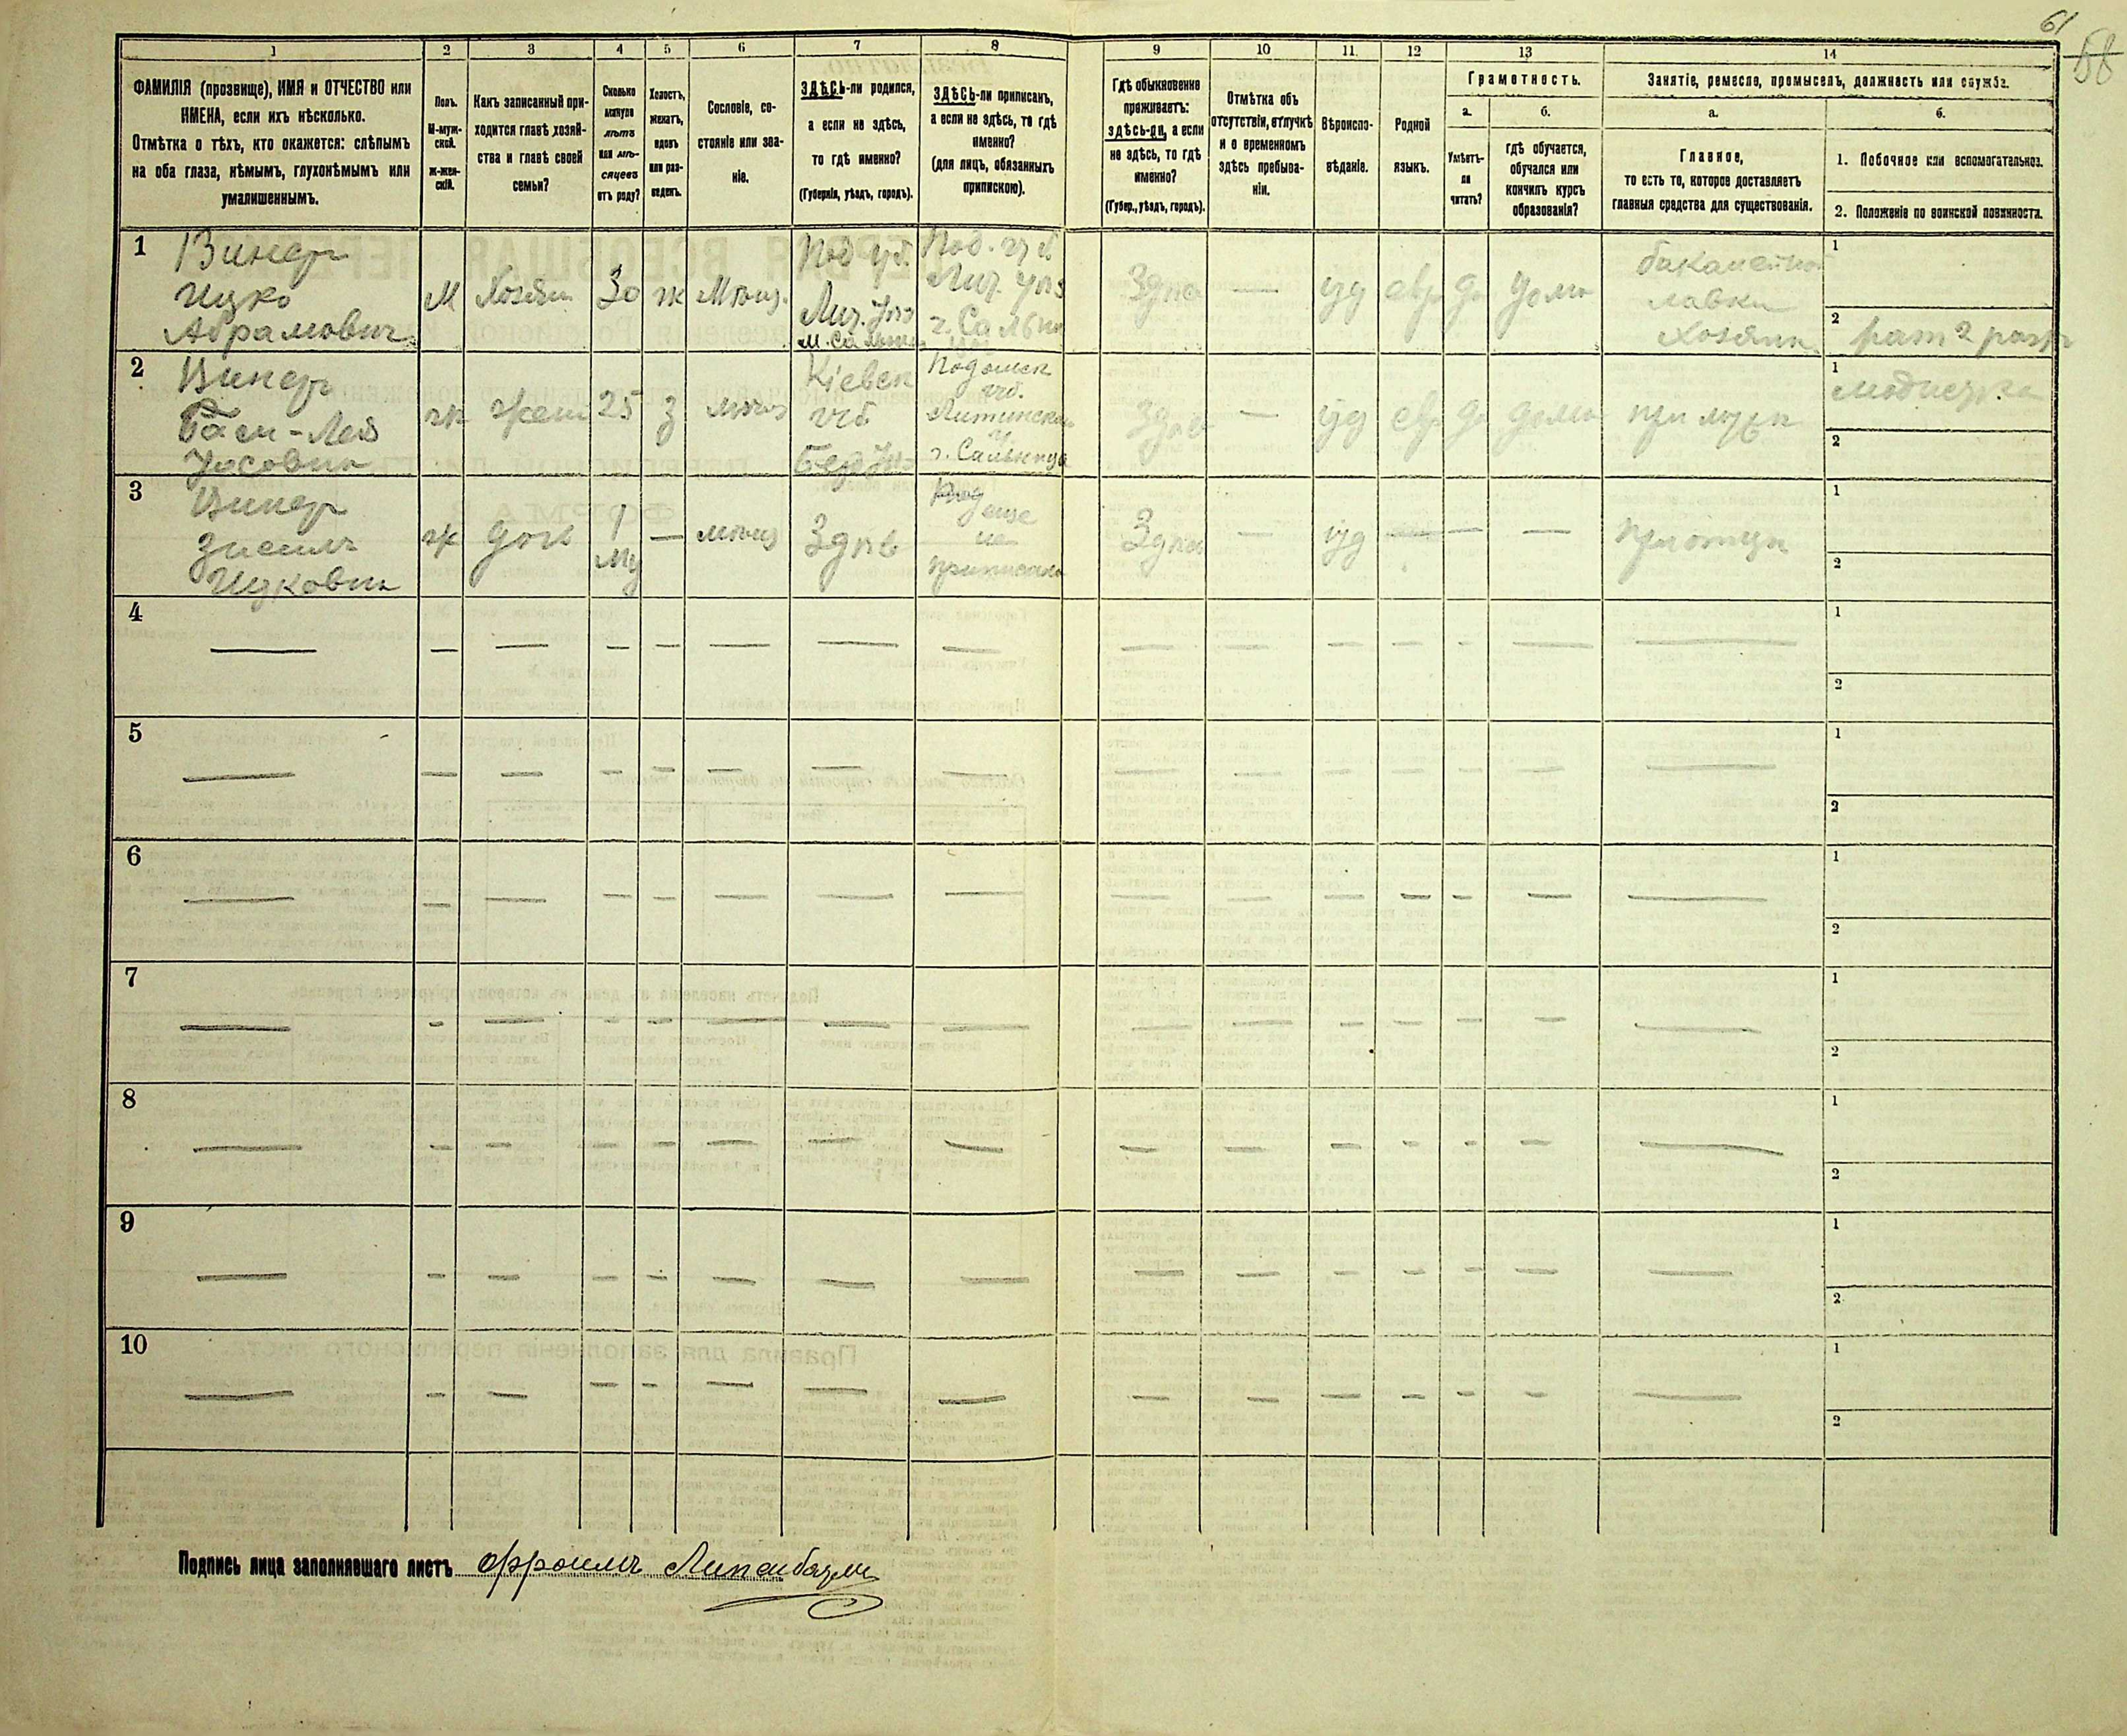 61
58
1
2
3
4
5
6
7
8
9
10
11
12
13
14
ФАМИЛІЯ (прозвище), ИМЯ и ОТЧЕСТВО или
ИМЕНА, если ихъ нѣсколько.
Отмѣтка о тѣхъ, кто окажется: слѣпымъ
на оба глаза, нѣмымъ, глухонѣмымъ или
умалишеннымъ.
Полъ.
М-муж-
ской.
Ж-жен-
скій.
Какъ записанный при-
ходится главѣ хозяй-
ства и главѣ своей
семьи?
Сколько
минуло
лѣтъ
или мѣ-
сяцевъ
отъ роду?
Холостъ,
женатъ,
вдовъ
или раз-
веденъ.
Сословіе, со-
стояніе или зва-
ніе.
ЗДѢСЬ-ли родился,
а если не здѣсь,
то гдѣ именно?
(Губернія, уѣздъ, городъ).
ЗДѢСЬ-ли приписанъ,
а если не здѣсь, то гдѣ
именно?
(для лицъ, обязанныхъ
припискою).
Гдѣ обыкновенно
проживаетъ:
здѣсь-ли, а если
не здѣсь, то гдѣ
именно?
(Губер., уѣздъ, городъ).
Отмѣтка объ
отсутствіи, отлучкѣ
и о временномъ
здѣсь пребыва-
ніи.
Вѣроиспо-
вѣданіе.
Родной
языкъ.
Грамотность.
а.
Умѣетъ-
ли
читать?
б.
гдѣ обучается,
обучался или
кончилъ курсъ
образованія?
Занятіе, ремесло, промыселъ, должность или служба.
а.
Главное,
то есть то, которое доставляетъ
главныя средства для существованія.
б.
1. Побочное или вспомогательное.
2. Положеніе по воинской повинности.
1
Винер
Ицко
Абрамович
М
Хозяин
30
ж
Мѣщ.
Под губ.
Лит. Уѣз
М. Сальни
Под. губ
Лит. уѣз
г. Сальни
Здѣсь
—
іуд
евр
да
дома
бакалейной
лавки
хозяин
1
2
рат 2 разр
2
Винер
Бася-Лея
Иосовна
ж
жена
25
З
мѣщ
Кіевск
губ
Бер Уѣз
Подольск
губ.
Литинска
у
г. Сальница
Здѣсь
—
іуд
евр
да
дома
при мужѣ
1
модистка
2
3
Винер
Зисель
Ицковна
ж
дочь
1
мц
—
мѣщ
Здѣсь
еще
не
приписана
Здѣсь
—
іуд
—
—
При отцѣ
1
2
4
1
2
5
1
2
6
1
2
7
1
2
8
1
2
9
1
2
10
1
2
Подпись лица заполнявшаго листъ Эфроимъ